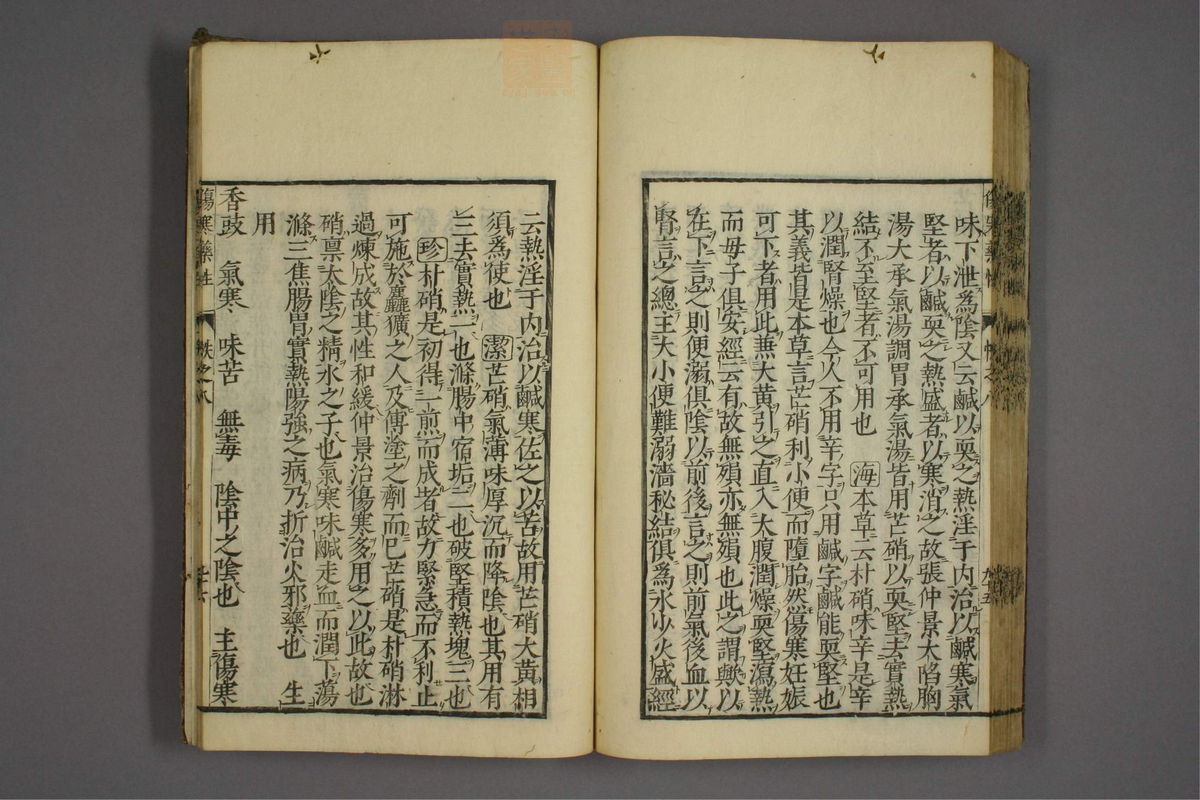 味下泄爲陰又云鹹以耎之熱淫于內治以鹹寒氣
堅者以鹹耎之熱盛者以寒消之故張仲景大陷胸
湯大承氣湯調胃承氣湯皆用芒硝以耎堅去實熱
結不至堅者不可用也 海本草云朴硝味辛是辛
以潤腎燥也今人不用辛字只用鹹字鹹能耎堅也
其義皆是本草言芒硝利小便而墮胎然傷寒妊娠
可下者用此兼大黃引之直入大腹潤燥耎堅瀉熱
而母子俱安經云有故無殞亦無殞也此之謂歟以
在下言之則便溺俱陰以前後言之則前氣後血以
腎言之總主大小便難溺濇秘結俱爲水少火盛經
云熱淫于內治以鹹寒佐之以苦故用芒硝大黃相
須爲使也 潔芒硝氣薄味厚沉而降陰也其用有
三去實熱一也滌腸中宿垢二也破堅積熱塊三也
珍朴硝是初得一煎而成者故方緊急而不利止
可施於麤獷之人及傅塗之劑而已芒硝是朴硝淋
過煉成故其性和緩仲景治傷寒多用之以此故也
硝禀太陰之精水之子也氣寒味鹹走血而潤下蕩
滌三焦腸胃實熱陽強之病乃折治火邪藥也 生
用
香豉 氣寒 味苦 無毒 陰中之陰也 主傷寒
傷寒藥性 帙之八